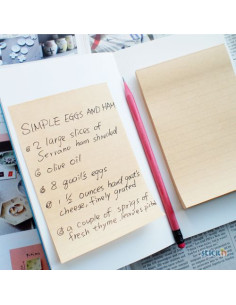 SIMPLE EGGS AND HAM
2 large slices of
Serrano ham shredded
olive oil
8 quail's eggs
1 ½ ounces hard goat's
cheese, finely grated
a couple of sprigs of
fresh thyme leaves picked